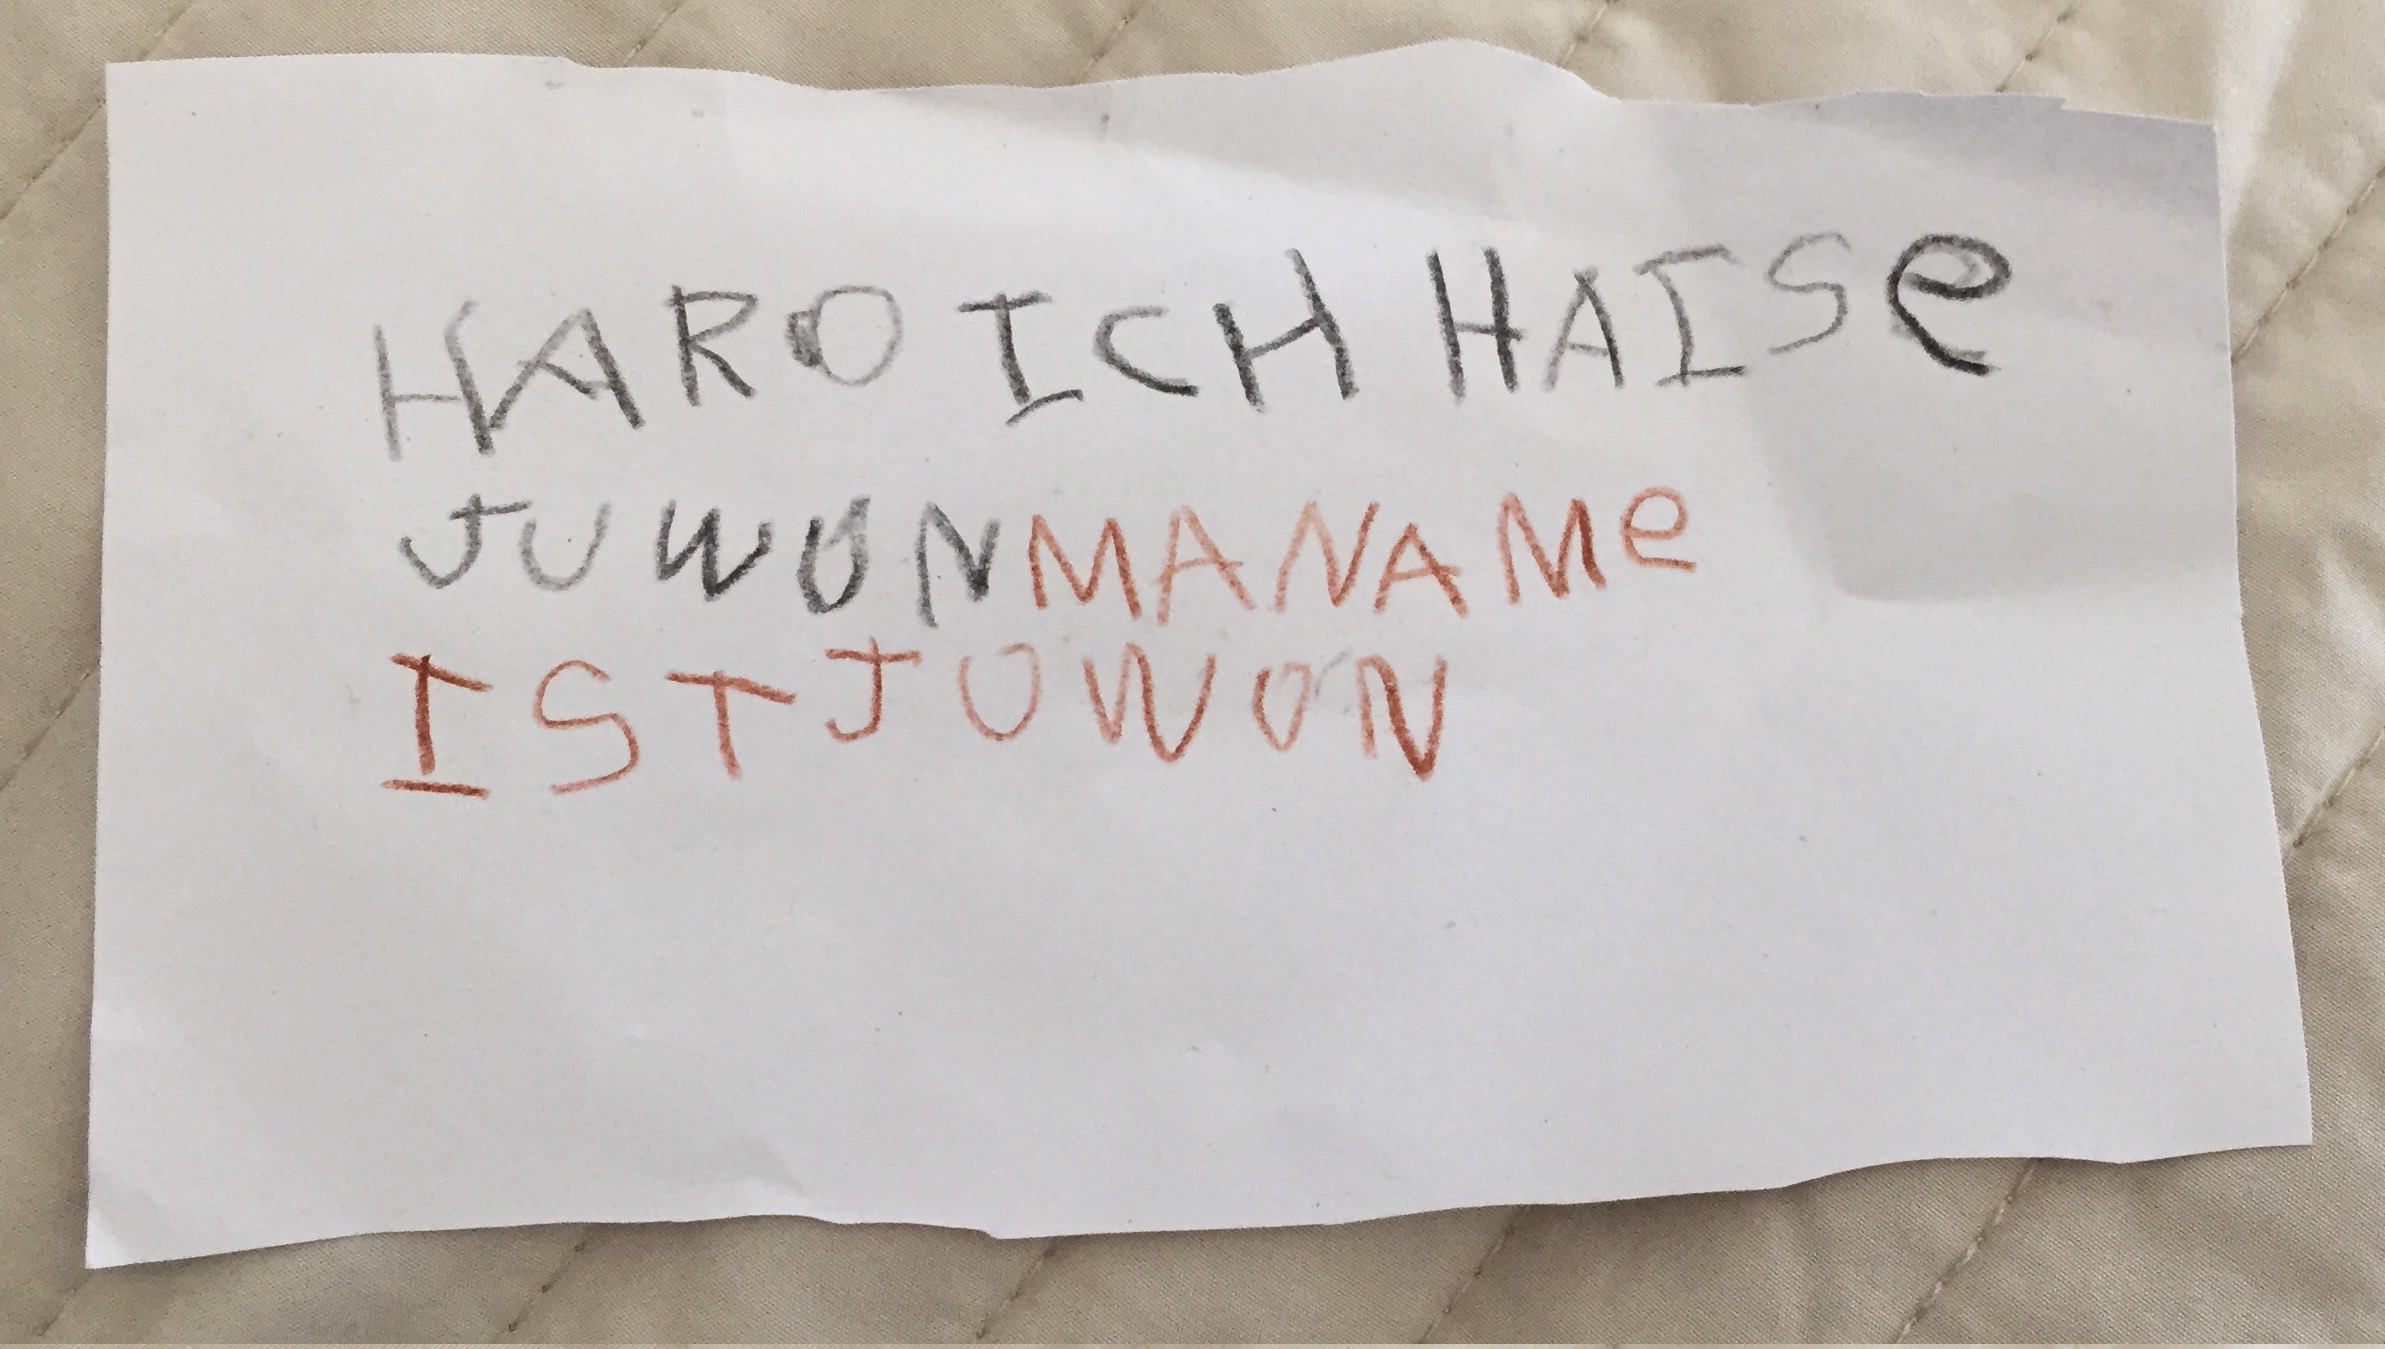 HARO ICH HAISe
JUWONMANAMe
IST JUWON